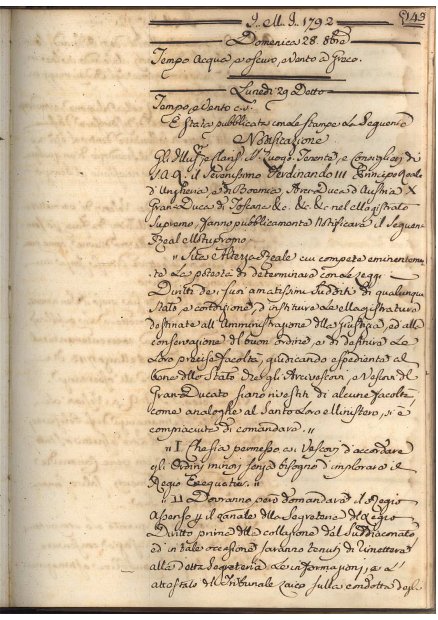 J. M. J. 1792
143
Domenica 28. 8bre
Tempo Acqua, e oscuro, e vento a Greco.
Lunedì 29 Detto
Tempo, e Vento c. s.
È Stata pubblicata con Le Stampe La Seguente
Notificazione
Gli Illust. e Clariss. Sig. Luogo Tenente, e Consiglieri di
S. A. R. il Serenissimo Ferdinando III Principe Reale
d'Ungheria, e di Boemia, Arciduca d'Austria X
Gran-Duca di Toscana &c. &c. &c. nel Magistrato
Supremo, fanno pubblicamente Notificare il Seguente
Real Motuproprio
" Sua Altezza Reale cui compete eminentemen,
te La potestà di determinare con Le Leggi
Diritti de' suoi amatissimi Sudditi di qualunque
Stato, e condizione, d'instituire Le Magistrature
destinate all'Amministrazione della Giustizia, ed alla
conservazione del buon ordine, e di definire Le
Loro precise facoltà, giudicando espediente al
bene dello Stato che gli Arcivescovi, e Vescovi del
Gran-Ducato siano rivestiti di alcune facoltà,
come analoghe al Santo Loro Ministero, si è
compiaciuta di comandare. "
" I. Che sia permesso ai Vescovi d'accordare
gli Ordini minori senza bisogno d'implorare il
Regio Exequatur. "
" II Dovranno però domandare il Regio
Assenso per il canale della Segreteria del Regio
Diritto prima della collazione del Suddiaconato
ed in tale occasione saranno tenuti di rimettere
alla detta Segreteria Le informazioni, e l'
attestato del Tribunale Laico sulla condotta degli